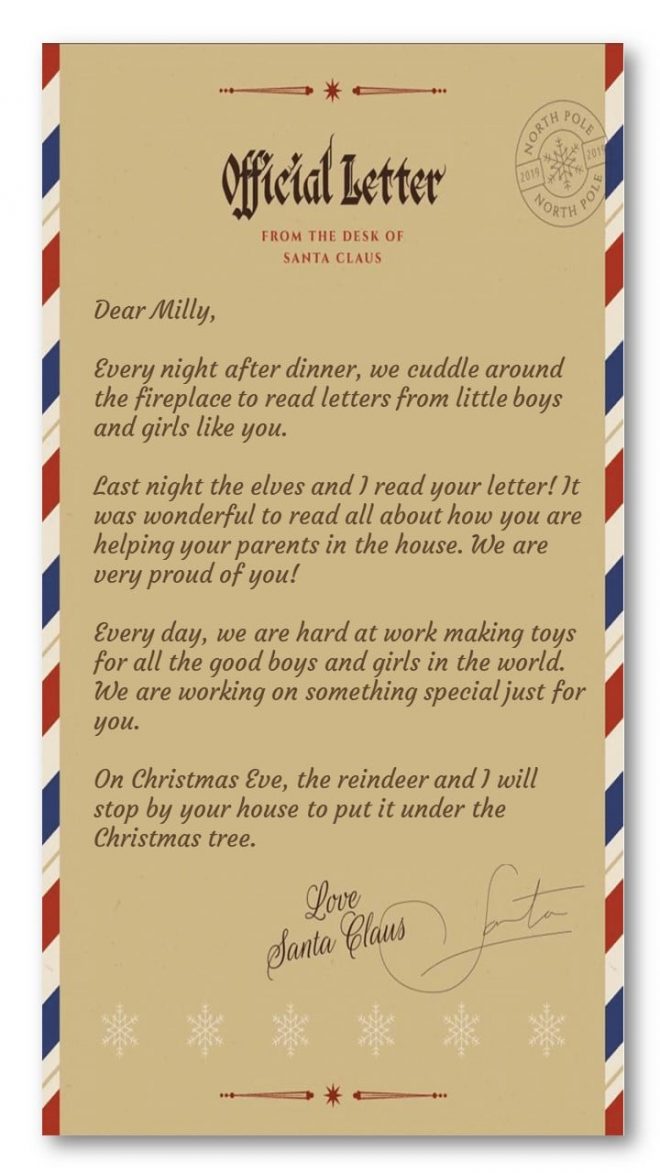 Official Letter
FROM THE DESK OF
SANTA CLAUS
NORTH POLE
2019
2019
NORTH POLE
Dear Milly,
Every night after dinner, we cuddle around
the fireplace to read letters from little boys
and girls like you.
Last night the elves and I read your letter! It
was wonderful to read all about how you are
helping your parents in the house. We are
very proud of you!
Every day, we are hard at work making toys
for all the good boys and girls in the world.
We are working on something special just for
you.
On Christmas Eve, the reindeer and I will
stop by your house to put it under the
Christmas tree.
Love
Santa Claus
Santa